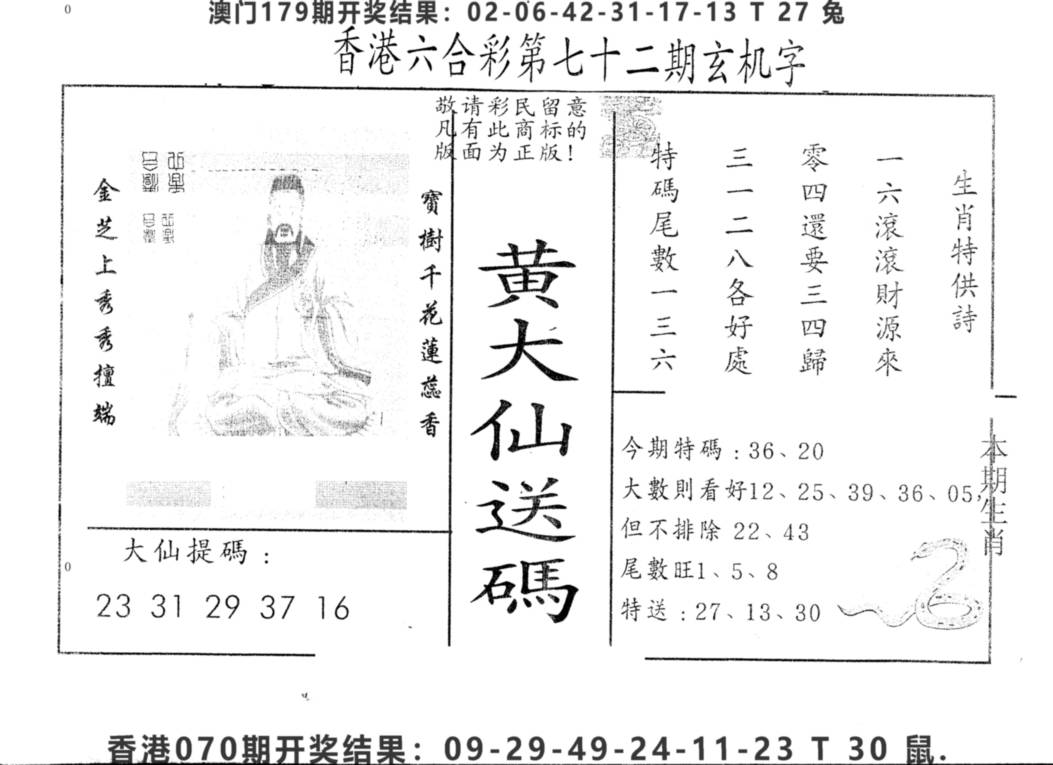 澳门179期开奖结果：02-06-42-31-17-13 T 27 兔
香港六合彩第七十二期玄机字
敬请彩民留意
凡有此商标的
版面为正版!
金芝上秀秀擅端
寶樹千花蓮蕊香
大仙提碼：
23 31 29 37 16
黄大仙送碼
生肖特供詩
一六滾滾財源來
零四還要三四歸
三一二八各好處
特碼尾數一三六
今期特碼：36、20
大數則看好12、25、39、36、05,
但不排除 22、43
尾數旺1、5、8
特送：27、13、30
本期生肖
香港070期开奖结果：09-29-49-24-11-23 T 30 鼠.